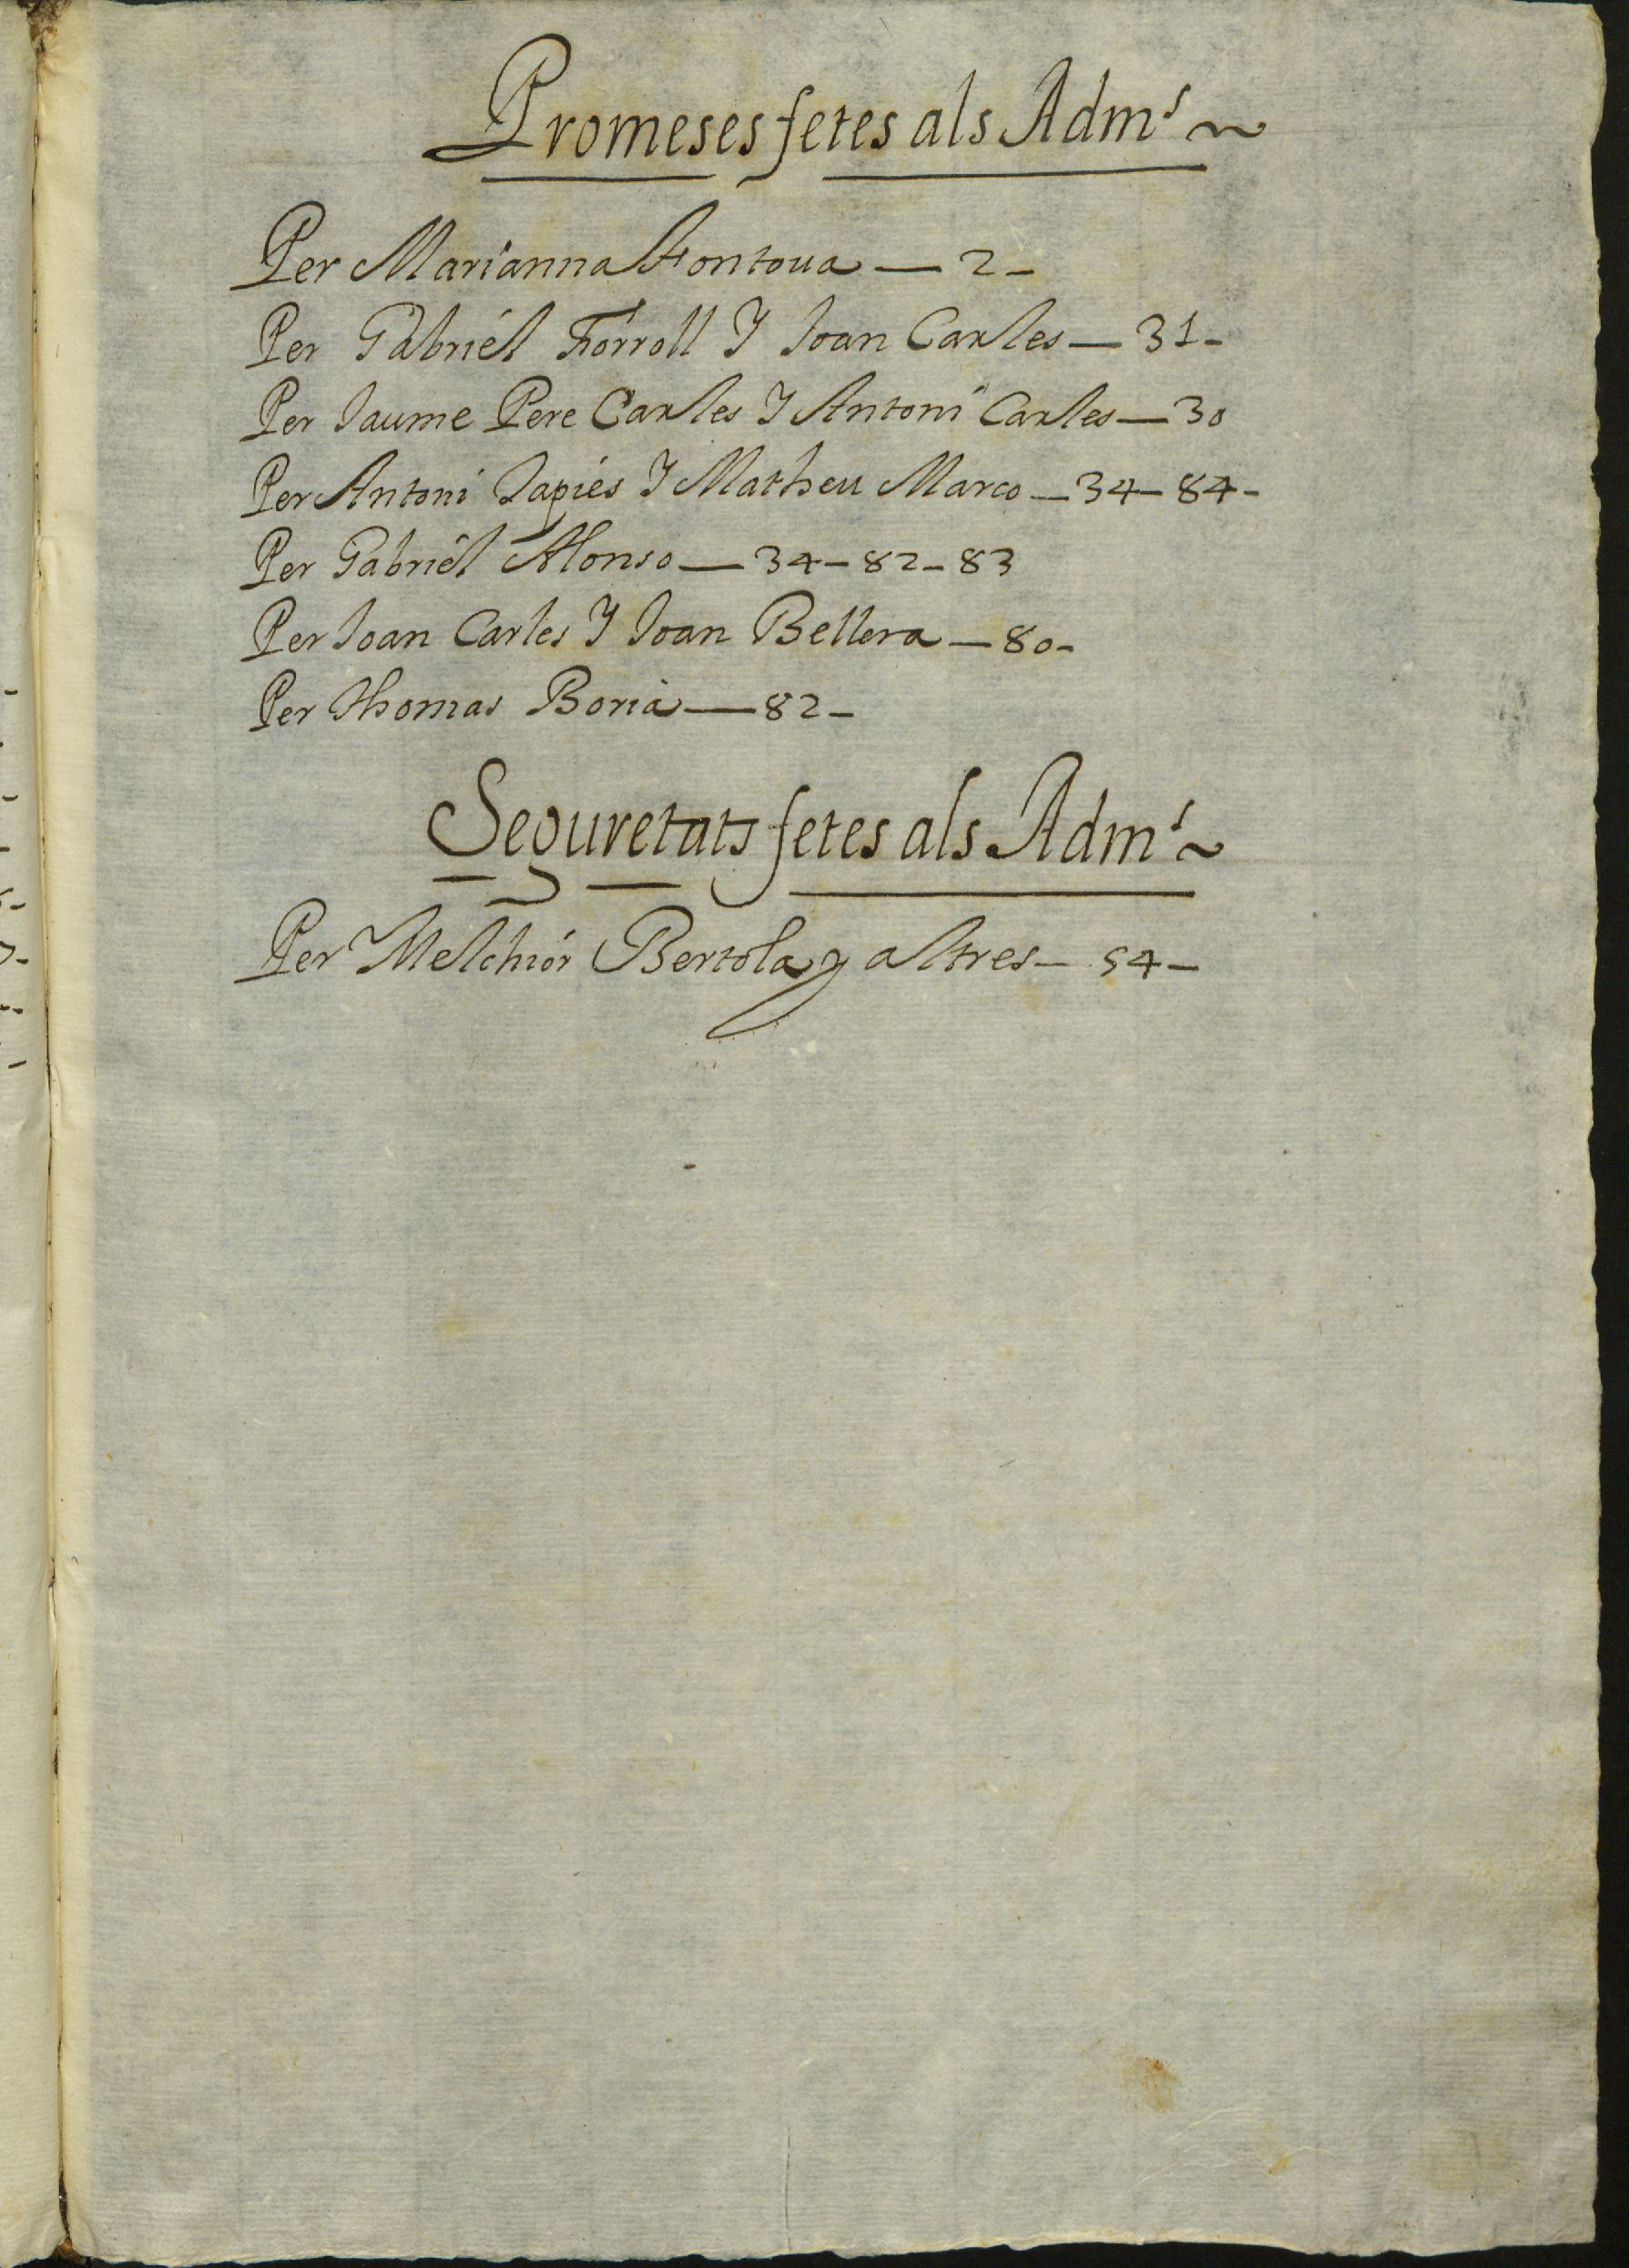 Promeses fetes als Adm.s
Per Marianna Fontova — 2 -
Per Gabriel Torroll Y Joan Carles — 31 -
Per Jaume Pere Carles Y Antoni Carles — 30
Per Antoni Tapies Y Matheu Marco — 34 - 84 -
Per Gabriel Alonso — 34 - 82 - 83
Per Joan Carles Y Joan Bellera — 80 -
Per Thomas Boria — 82 -
Seguretats fetes als Adm.s
Per Melchior Bertola y altres - 54 -